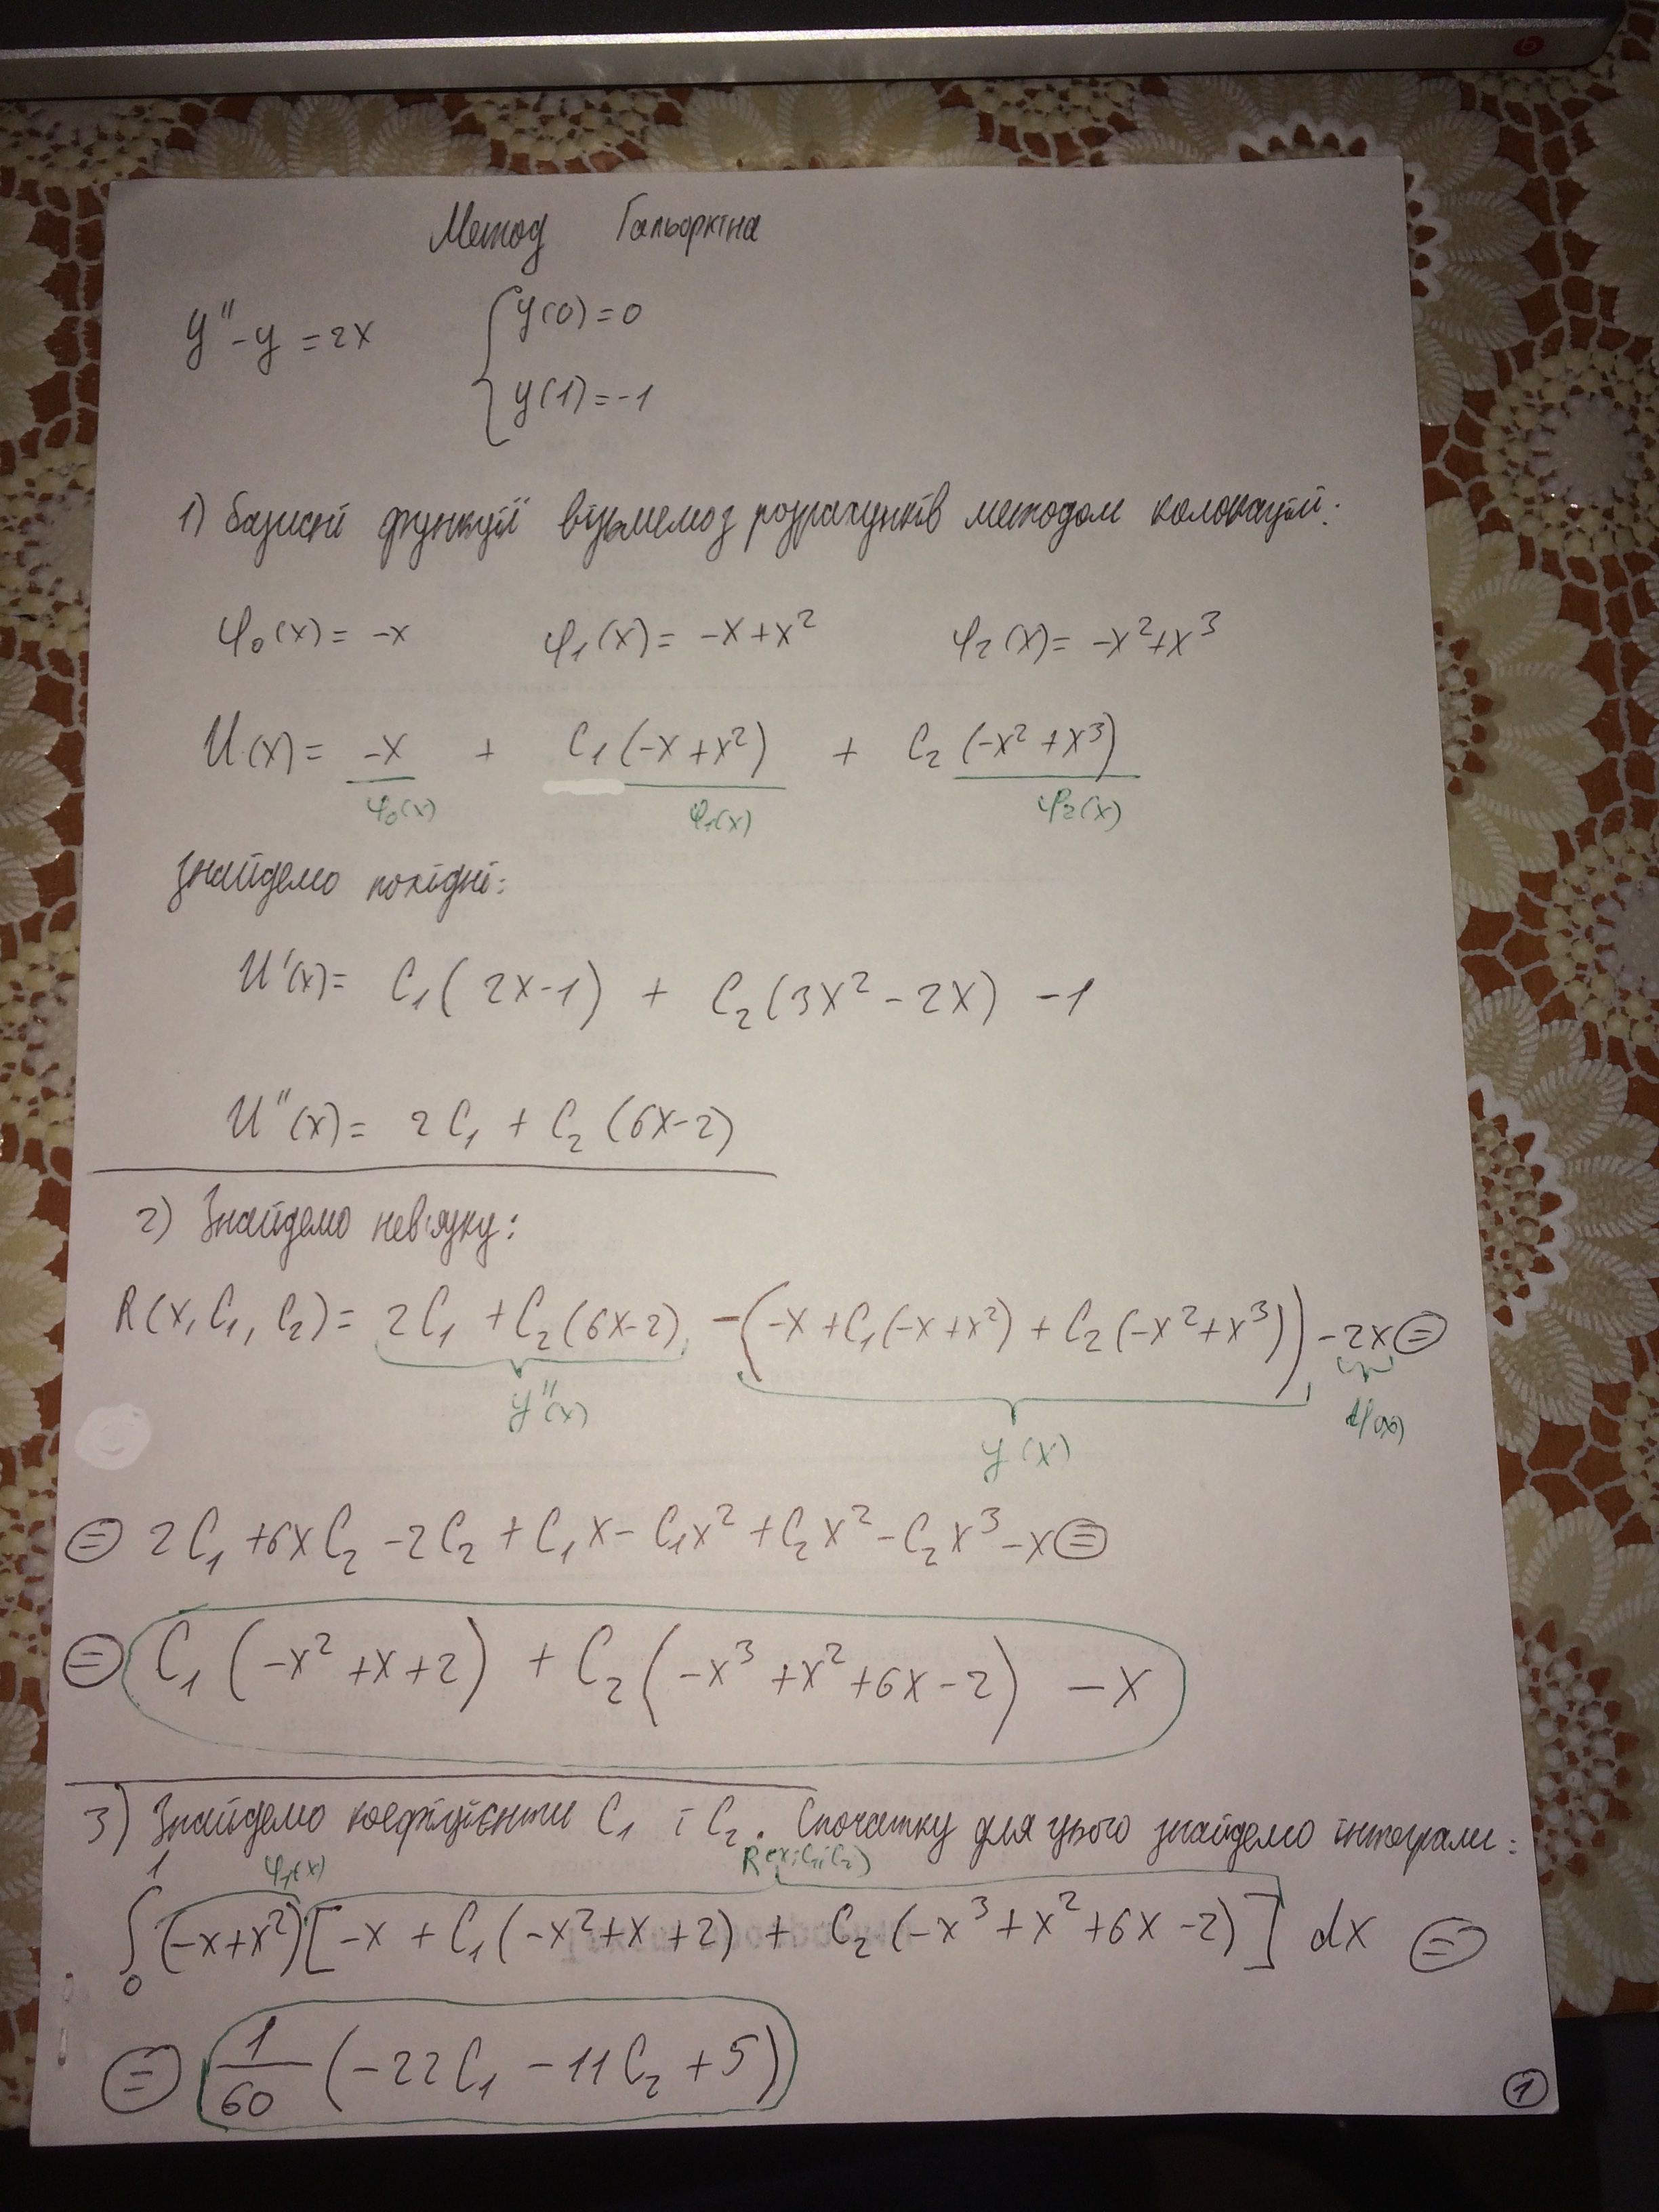 Метод Гальоркіна
y'' - y = 2x { y(0) = 0
y(1) = -1
1) Базисні функції візьмемо з розрахунків методом колокацій:
φ₀(x) = -x φ₁(x) = -x + x² φ₂(x) = -x² + x³
U(x) = -x + C₁(-x + x²) + C₂(-x² + x³)
φ₀(x) φ₁(x) φ₂(x)
Знайдемо похідні:
U'(x) = C₁(2x-1) + C₂(3x² - 2x) - 1
U''(x) = 2C₁ + C₂(6x-2)
2) Знайдемо нев'язку:
R(x, C₁, C₂) = 2C₁ + C₂(6x-2) - (-x + C₁(-x + x²) + C₂(-x² + x³)) - 2x =
y''(x) y(x)
= 2C₁ + 6xC₂ - 2C₂ + C₁x - C₁x² + C₂x² - C₂x³ - x =
= C₁(-x² + x + 2) + C₂(-x³ + x² + 6x - 2) - x
3) Знайдемо коефіцієнти C₁ і C₂. Спочатку для цього знайдемо інтеграли:
φ₁(x) R(x; C₁; C₂)
∫₀¹ (-x + x²)[-x + C₁(-x² + x + 2) + C₂(-x³ + x² + 6x - 2)] dx =
= 1/60 (-22C₁ - 11C₂ + 5)
1